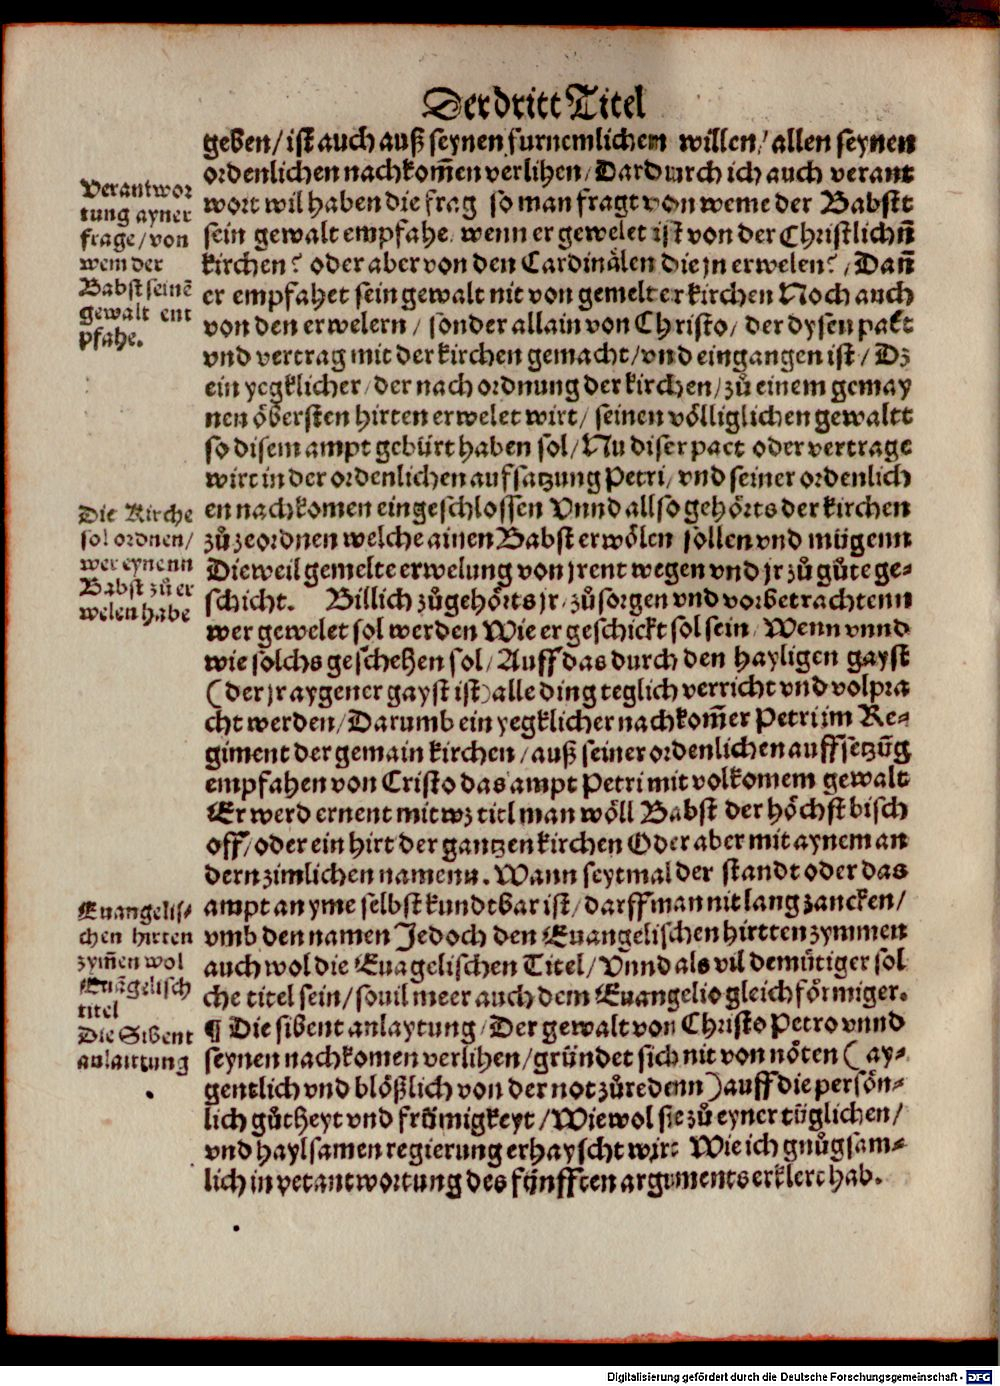 Der dritt Titel
geben / ist auch auß seynen furnemlichem willen / allen seynen
ordenlichen nachkom̄en verlihen / Dardurch ich auch verant
wort wil haben die frag so man fragt von weme der Babstt
sein gewalt empfahe wenn er gewelet ist von der Christlichn̄
kirchen? oder aber von den Cardinälen die jn erwelen? / Dan̄
er empfahet sein gewalt nit von gemelter kirchen Noch auch
von den erwelern / sonder allain von Christo / der dysen pakt
vnd vertrag mit der kirchen gemacht / vnd eingangen ist / Dz
ein yegklicher / der nach ordnung der kirchen / zů einem gemay
nen öbersten hirten erwelet wirt / seinen völliglichen gewaltt
so disem ampt gebürt haben sol / Nu diser pact oder vertrage
wirt in der ordenlichen aufsatzung Petri / vnd seiner ordenlich
en nachkomen eingeschlossen Vnnd allso gehörts der kirchen
zů zeordnen welche ainen Babst erwölen söllen vnd mügenn
Dieweil gemelte erwelung von jrent wegen vnd jr zů gůte ge-
schicht. Billich zůgehörts jr / zů sorgen vnd vorbetrachtenn
wer gewelet sol werden Wie er geschickt sol sein / Wenn vnnd
wie solchs geschehen sol / Auff das durch den hayligen gayst
(der jr aygener gayst ist) alle ding teglich verricht vnd volpra
cht werden / Darumb ein yegklicher nachkom̄er Petri im Re-
giment der gemain kirchen / auß seiner ordenlichen auffsetzūg
empfahen von Cristo das ampt Petri mit volkomem gewalt
Er werd ernent mit wz titl man wöll Babst der höchst bisch
off / oder ein hirt der gantzen kirchen Oder aber mit aynem an
dern zimlichen namenn. Wann seytmal der standt oder das
ampt an yme selbst kundtbar ist / darff man nit lang zancken /
vmb den namen Jedoch den Euangelischen hirtten zymmen
auch wol die Euagelischen Titel / Vnnd als vil demütiger sol
che titel sein / souil meer auch dem Euangelio gleichförmiger.
¶ Die sibent anlaytung / Der gewalt von Christo Petro vnnd
seynen nachkomen verlihen / gründet sich nit von nöten (ay-
gentlich vnd blößlich von der not zůredenn) auff die persön-
lich gůtheyt vnd frūmigkeyt / Wiewol sie zů eyner tüglichen /
vnd haylsamen regierung erhayscht wirt Wie ich gnůgsam-
lich in verantwortung des fünfften arguments erklert hab.
Verantwor
tung ayner
frage / von
wem der
Babst seinē
gewalt ent
pfahe.
Die Kirche
sol ordnen /
wer eynenn
Babst zů er
welen habe
Euangelis-
chen hirten
zym̄en wol
Euāgelisch
titel
Die Sibent
anlaittung
Digitalisierung gefördert durch die Deutsche Forschungsgemeinschaft - DFG